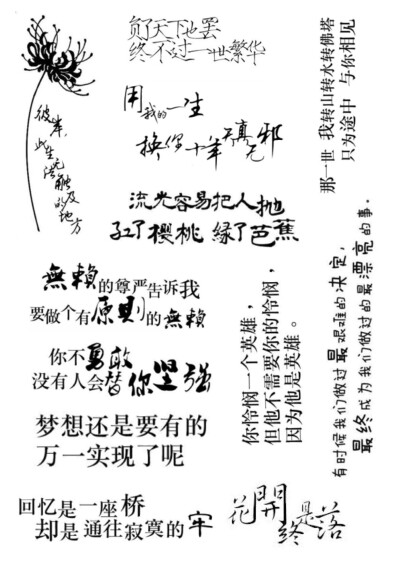 负了天下也罢
终不过一世繁华
用我的一生
换你十年天真无邪
那一世 我转山转水转佛塔
只为途中 与你相见
彼岸，
此生
无法
触及
的地方
流光容易把人抛
红了樱桃 绿了芭蕉
無賴的尊严告诉我
要做个有原则的無賴
你怜悯一个英雄，
但他不需要你的怜悯，
因为他是英雄。
有时候我们做过最艰难的决定，
最终成为我们做过的最漂亮的事。
你不勇敢
没有人会替你坚强
梦想还是要有的
万一实现了呢
回忆是一座桥
却是通往寂寞的牢
花開终是落